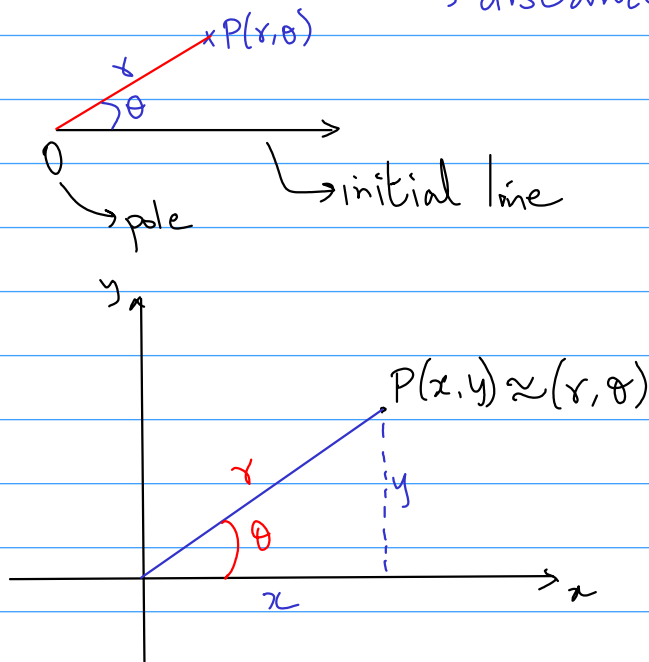 P(r,θ)
r
θ
O
initial line
pole
y
P(x,y)≈(r,θ)
r
y
θ
x
x